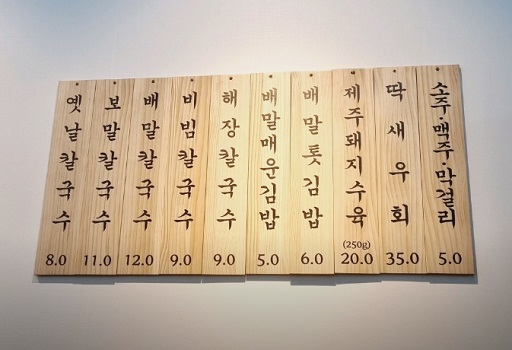 옛날칼국수
8.0
보말칼국수
11.0
배말칼국수
12.0
비빔칼국수
9.0
해장칼국수
9.0
배말매운김밥
5.0
배말톳김밥
6.0
제주돼지수육
(250g)
20.0
딱새우회
35.0
소주·맥주막걸리
5.0